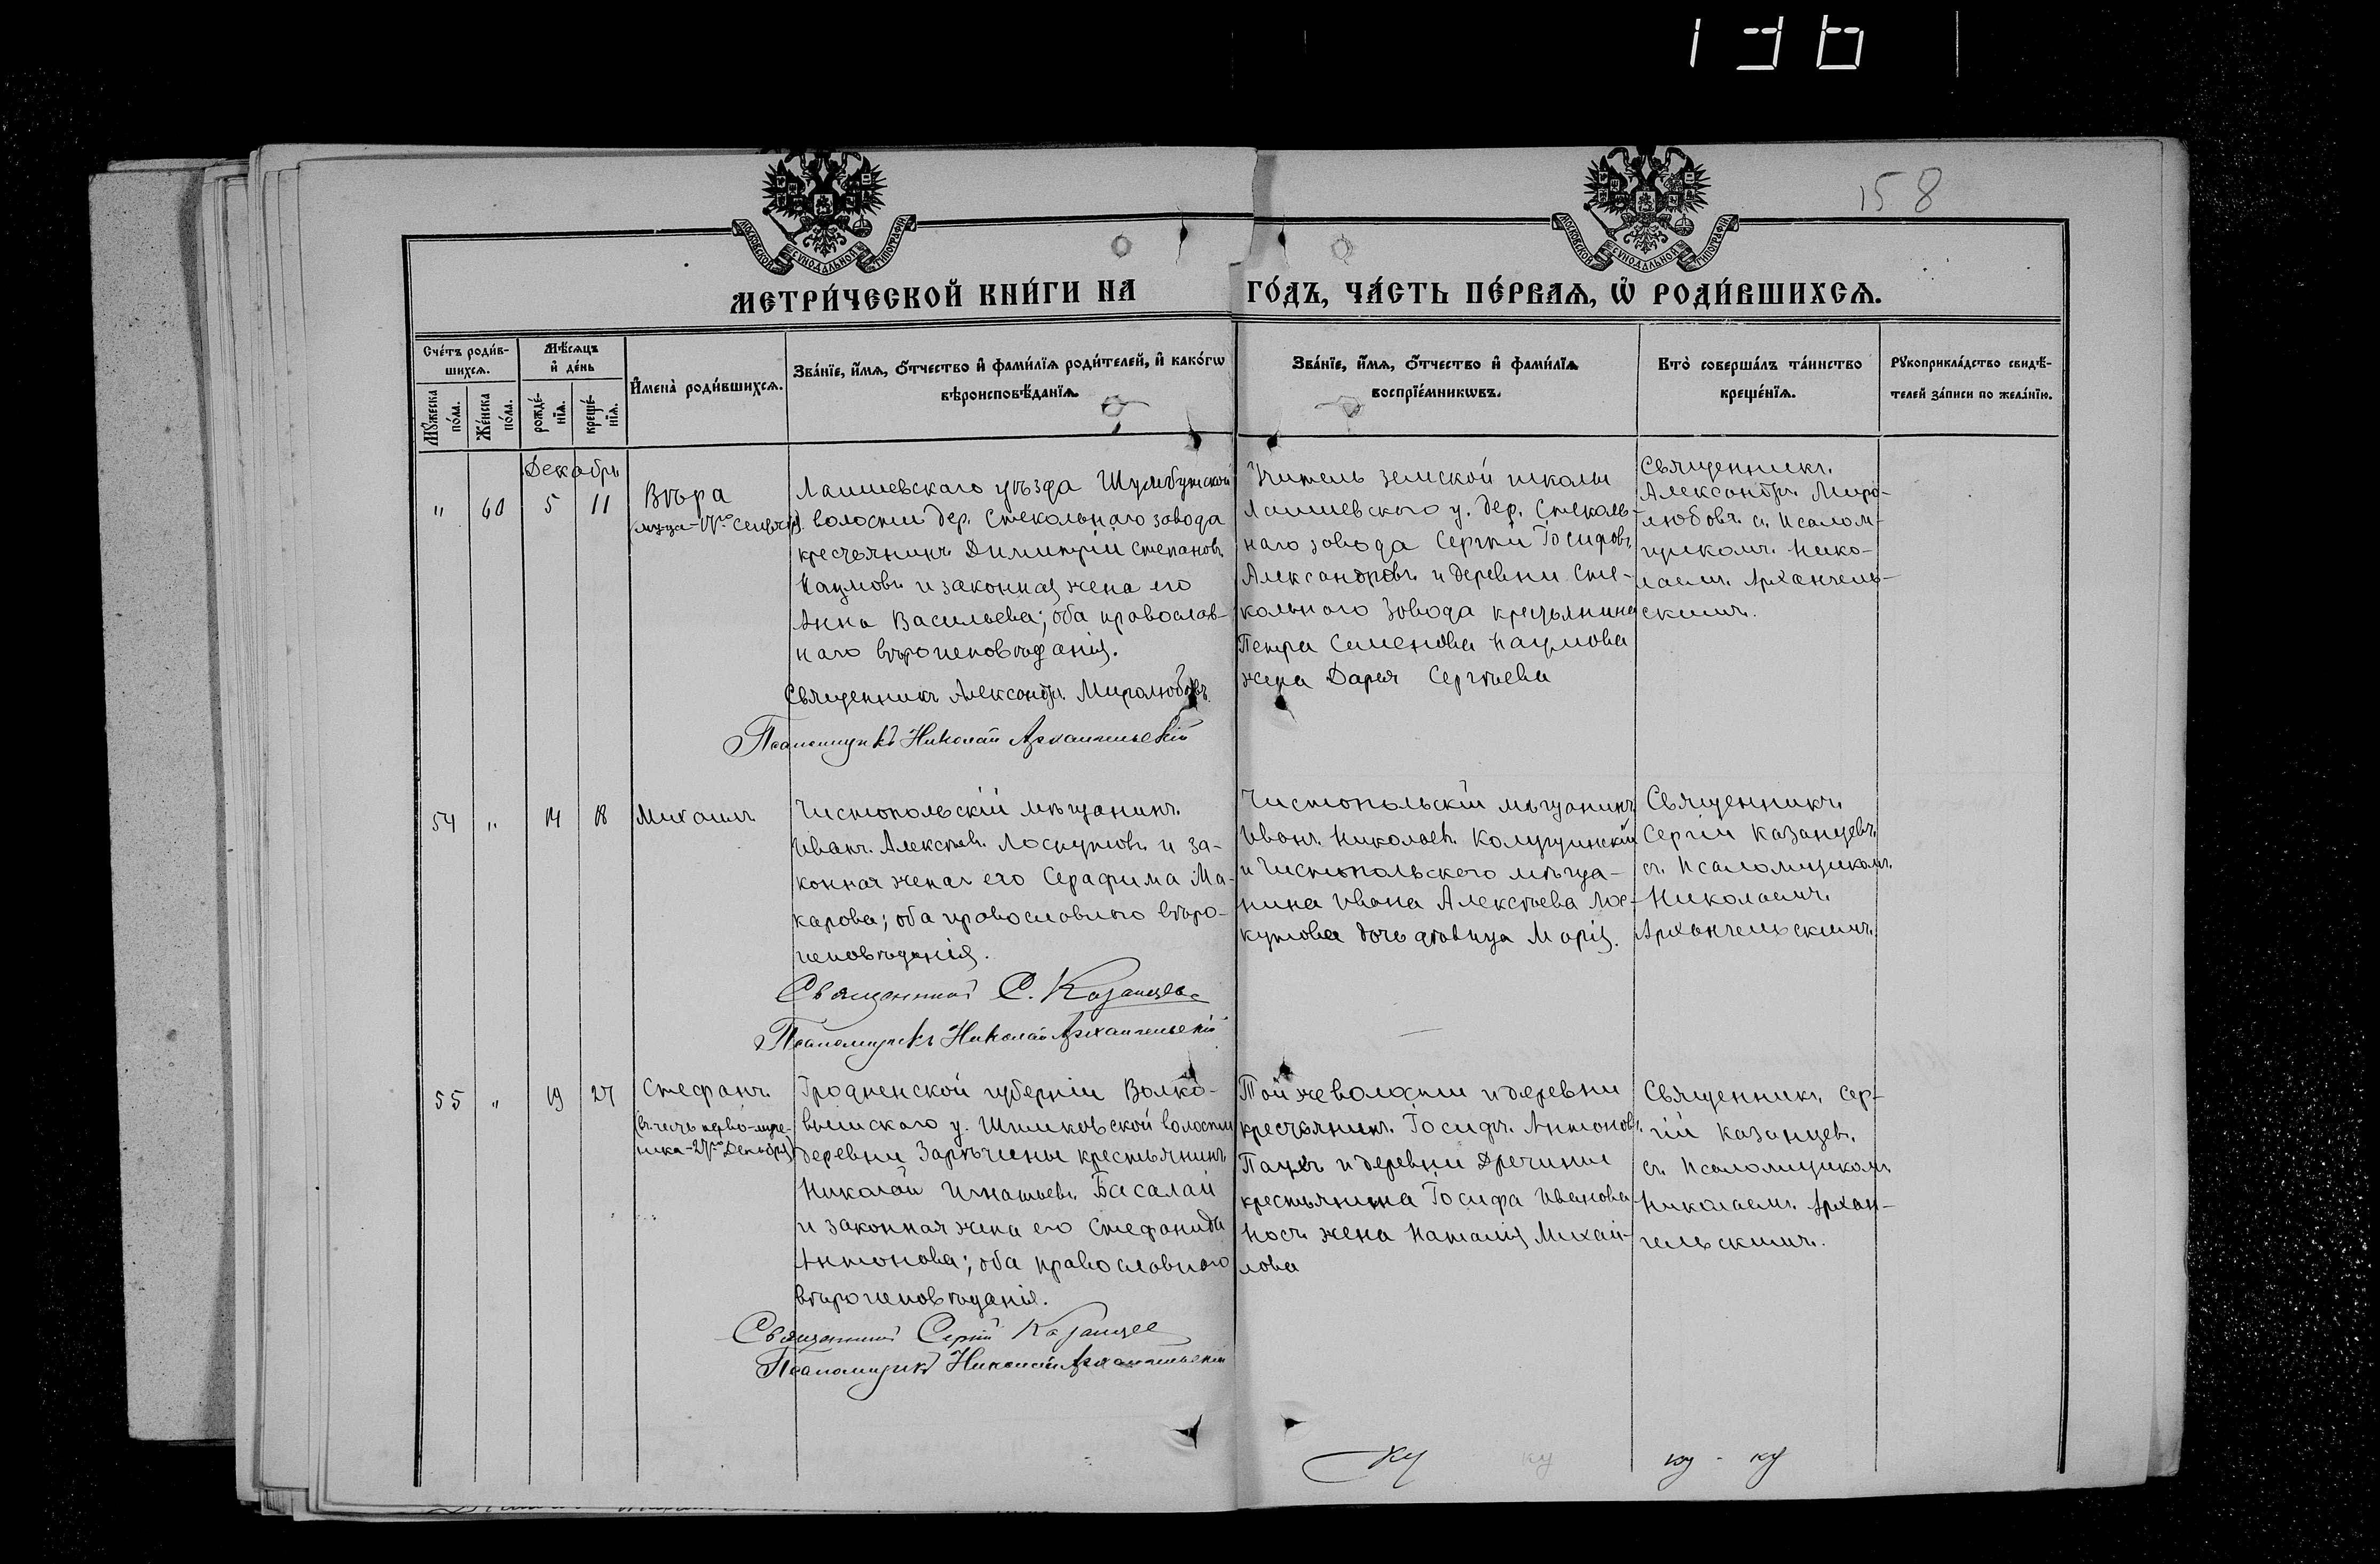 136
158
МОСКОВСКОЙ СѴНОДАЛЬНОЙ ТИПОГРАФІИ
МОСКОВСКОЙ СѴНОДАЛЬНОЙ ТИПОГРАФІИ
МЕТРИ́ЧЕСКОЙ КНИ́ГИ НА ГО́ДЪ, ЧА́СТЬ ПЕ́РВАѦ, Ѡ҆ РОДИ́ВШИХСѦ.
Сче́тъ роди́в-
шихсѧ.
Мꙋ́жеска по́ла.
Же́нска по́ла.
Мѣ́сѧцъ
и҆ де́нь
рожде́-
нїѧ.
креще́-
нїѧ.
И҆мена̀ роди́вшихсѧ.
Зва́нїе, и҆́мѧ, ѻ҆́тчество и҆ фами́лїѧ роди́телей, и҆ како́гѡ
вѣроисповѣ́данїѧ.
Зва́нїе, и҆́мѧ, ѻ҆́тчество и҆ фами́лїѧ
воспрїе́мникѡвъ.
Кто̀ соверша́лъ та́инство
креще́нїѧ.
Рꙋкоприкла́дство свидѣ́-
телей за́писи по жела́нїю.
Декабрь
" 60 5 11 Вѣра
Лаишевскаго уѣзда Шумбутской
волости дер. Стекольнаго завода
крестьянинъ Димитрій Степановъ
Наумовъ и законная жена его
Анна Васильева; оба православ-
наго вѣроисповѣданія.
Священникъ Александръ Миролюбовъ
Псаломщикъ Николай Архангельскій
Учитель земской школы
Лаишевского у. дер. Стеколь-
наго завода Сергѣй Іосифовъ
Александровъ и деревни Сте-
кольного завода крестьянина
Петра Семенова Наумова
жена Дарья Сергѣева
Священникъ
Александръ Миро-
любовъ съ псалом-
щикомъ Нико-
лаемъ Архангель-
скимъ.
54 " 14 18 Михаилъ
Чистопольскій мѣщанинъ
Иванъ Алексѣевъ Лоскутовъ и за-
конная жена его Серафима Ма-
карова; оба православного вѣро-
исповѣданія.
Священникъ С. Казанцевъ
Псаломщикъ Николай Архангельскій
Чистопольскій мѣщанинъ
Иванъ Николаевъ
и Чистопольского мѣща-
нина Ивана Алексѣева Лос-
кутова дочь дѣвица Марія.
Священникъ
Сергій Казанцевъ
съ псаломщикомъ
Николаемъ
Архангельскимъ.
55 " 19 27 Стефанъ
(въ честь перво-муче-
ника-27го Декабря)
Гродненской губерніи Волко-
выйского у. волости
деревни Зарѣчаны крестьянинъ
Николай Игнатьевъ Басалай
и законная жена его Стефанида
Антонова; оба православного
вѣроисповѣданія.
Священникъ Сергій Казанцев
Псаломщикъ Николай Архангельскій
Той же волости и деревни
крестьянинъ Іосифъ Антоновъ
и деревни
крестьянина Іосифа Иванова
жена Наталія Михай-
лова
Священникъ Сер-
гій Казанцевъ
съ псаломщикомъ
Николаемъ Архан-
гельскимъ.